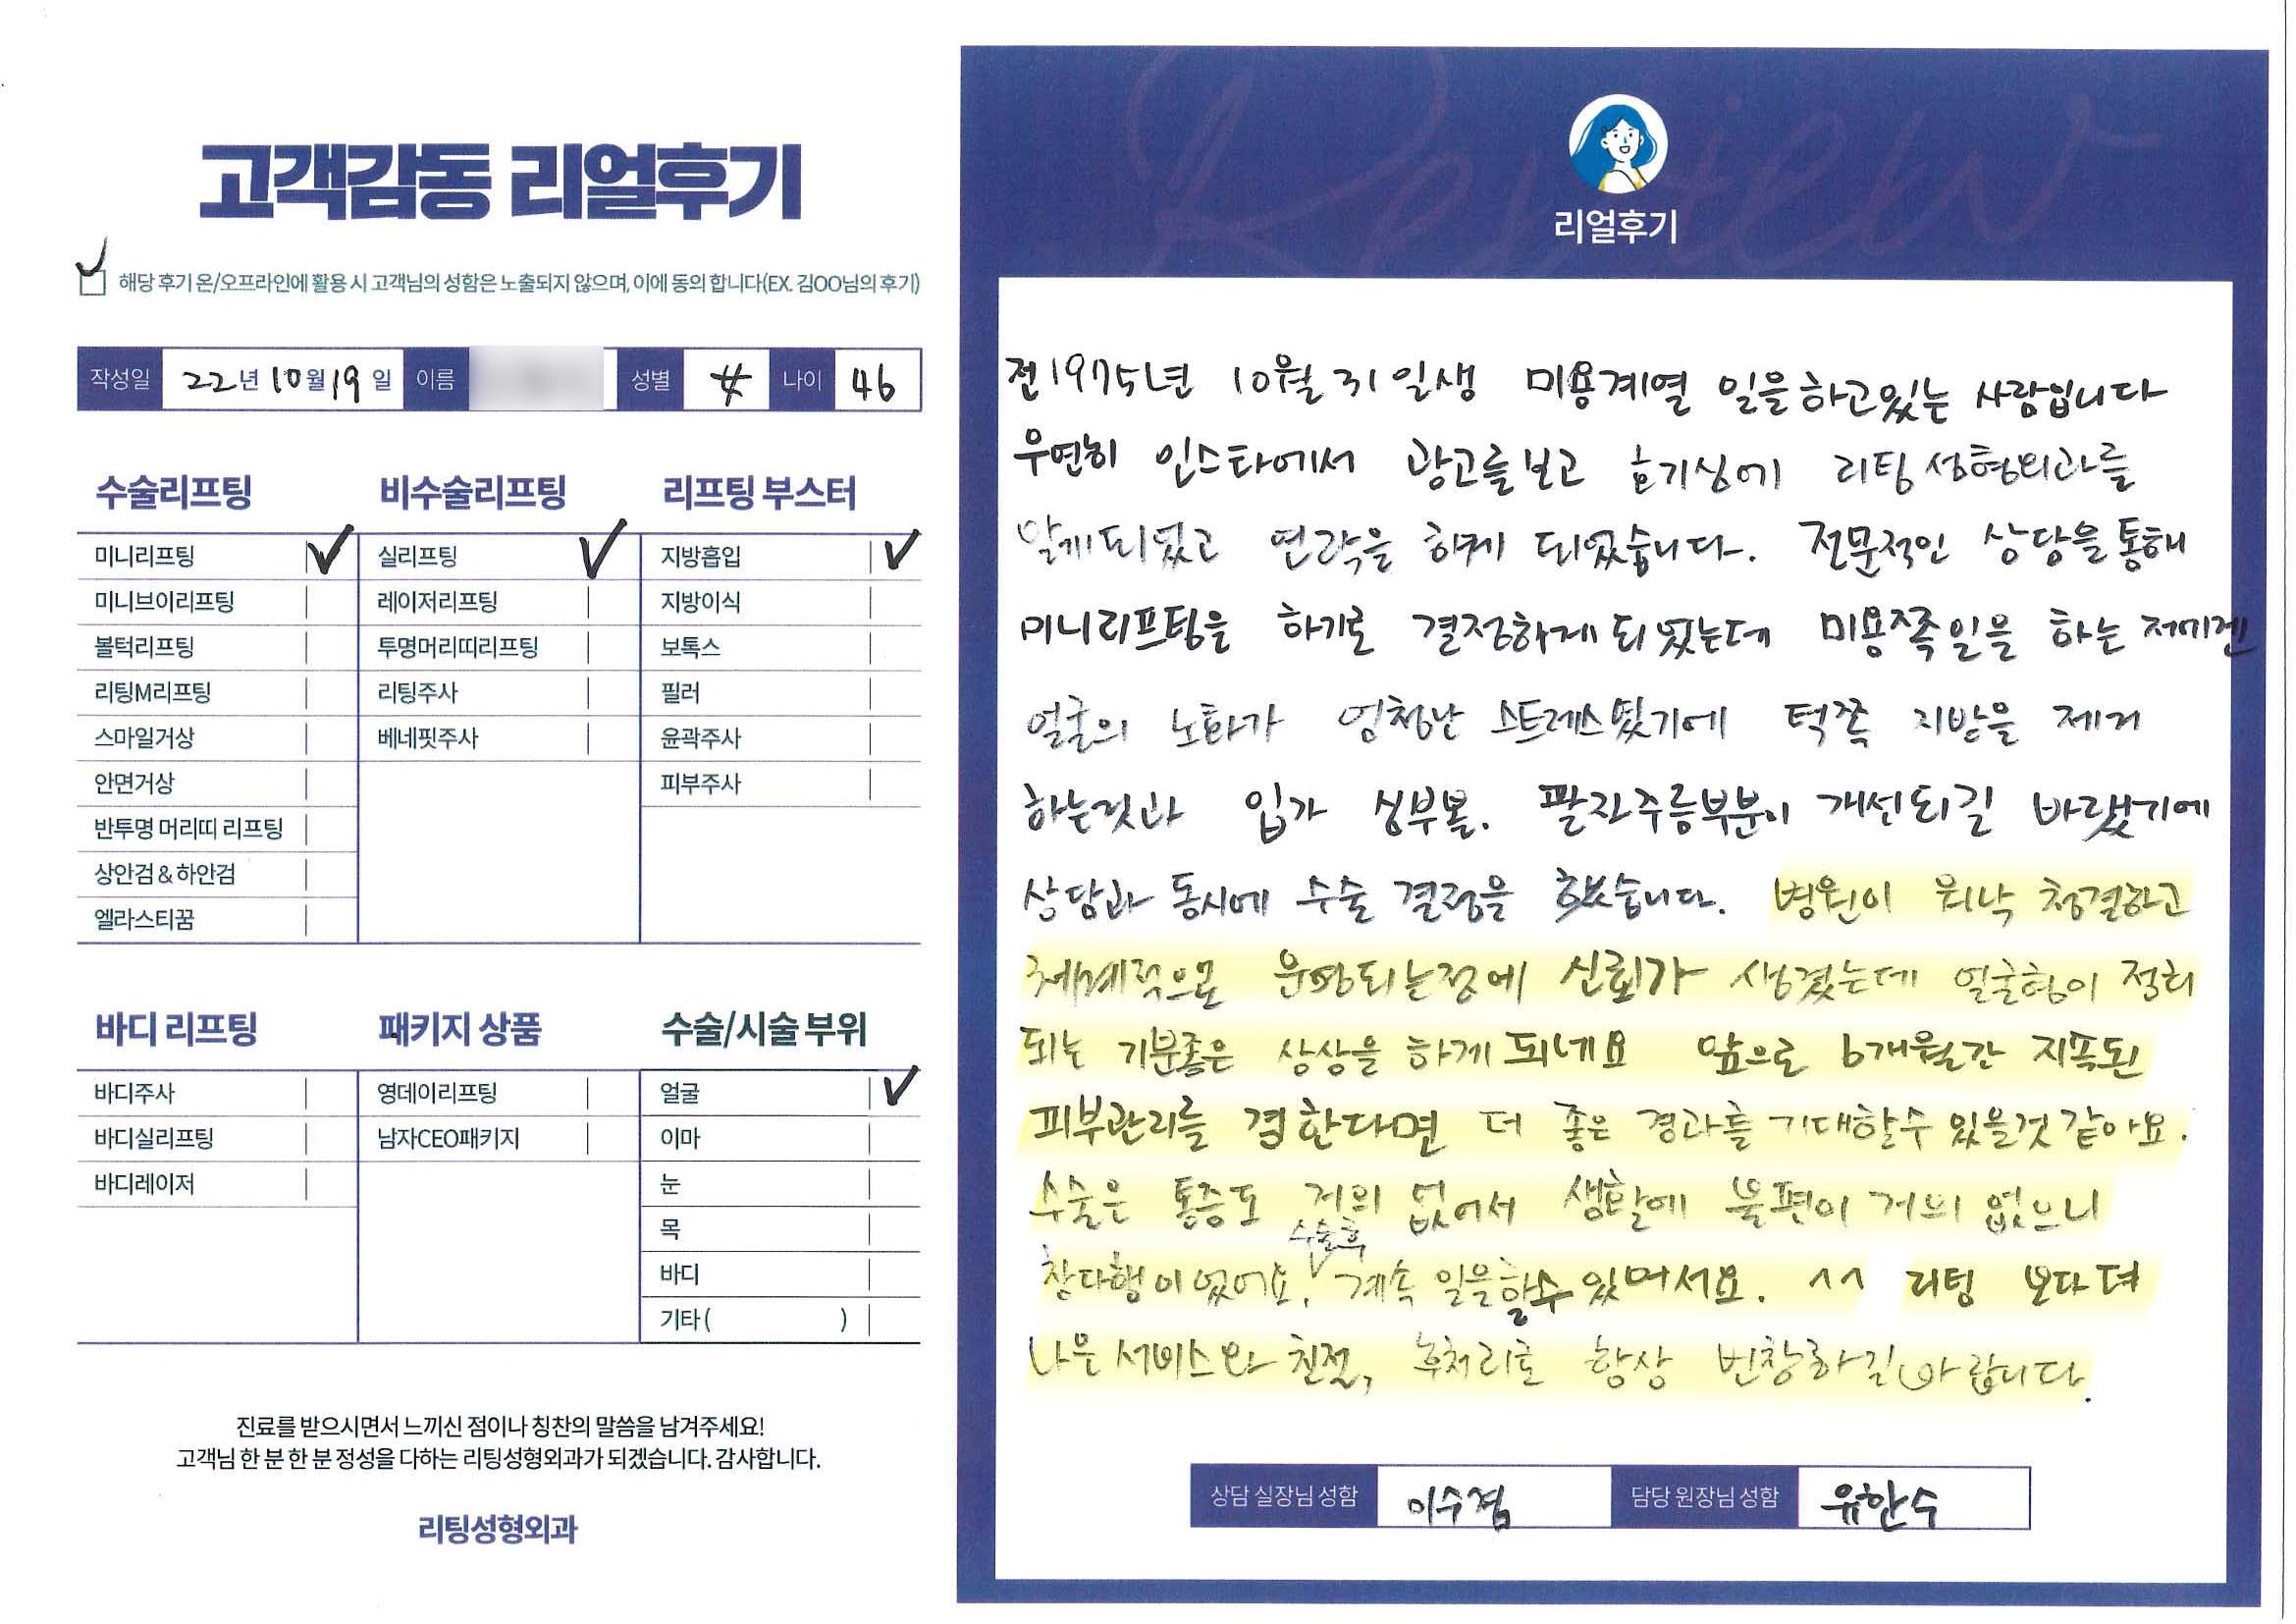 고객감동 리얼후기
해당 후기 온/오프라인에 활용 시 고객님의 성함은 노출되지 않으며, 이에 동의 합니다(EX. 김OO님의 후기)
작성일 22년 10월 19일 이름 성별 女 나이 46
수술리프팅
미니리프팅 ✓
미니브이리프팅
볼턱리프팅
리팅M리프팅
스마일거상
안면거상
반투명 머리띠 리프팅
상안검 & 하안검
엘라스티꿈
비수술리프팅
실리프팅 ✓
레이저리프팅
투명머리띠리프팅
리팅주사
베네핏주사
리프팅 부스터
지방흡입 ✓
지방이식
보톡스
필러
윤곽주사
피부주사
바디 리프팅
바디주사
바디실리프팅
바디레이저
패키지 상품
영데이리프팅
남자CEO패키지
수술/시술 부위
얼굴 ✓
이마
눈
목
바디
기타 ( )
진료를 받으시면서 느끼신 점이나 칭찬의 말씀을 남겨주세요!
고객님 한 분 한 분 정성을 다하는 리팅성형외과가 되겠습니다. 감사합니다.
리팅성형외과
Review
리얼후기
전 1975년 10월 31일생 미용계열 일을하고있는 사람입니다
우연히 인스타에서 광고를보고 호기심에 리팅성형외과를
알게되었고 연락을 하게 되었습니다. 전문적인 상담을통해
미니리프팅을 하기로 결정하게되었는데 미용쪽일을 하는 저에겐
얼굴의 노화가 엄청난 스트레스였기에 턱쪽 지방을 제거
하는것과 입가 심부볼. 팔자주름부분이 개선되길 바랬기에
상담과 동시에 수술 결정을 했습니다. 병원이 워낙 청결하고
체계적으로 운영되는점에 신뢰가 생겼는데 얼굴형이 정리
되는 기분좋은 상상을 하게되네요 앞으로 6개월간 지속된
피부관리를 겸한다면 더 좋은 경과를 기대할수 있을것 같아요.
수술은 통증도 거의 없어서 생활에 불편이 거의 없으니
참다행이었어요, 수술후 계속 일을할수 있어서요. ^^ 리팅 보다 더
나은서비스와 친절, 후처리로 항상 번창하길바랍니다.
상담 실장님 성함 이수정 담당 원장님 성함 유한수